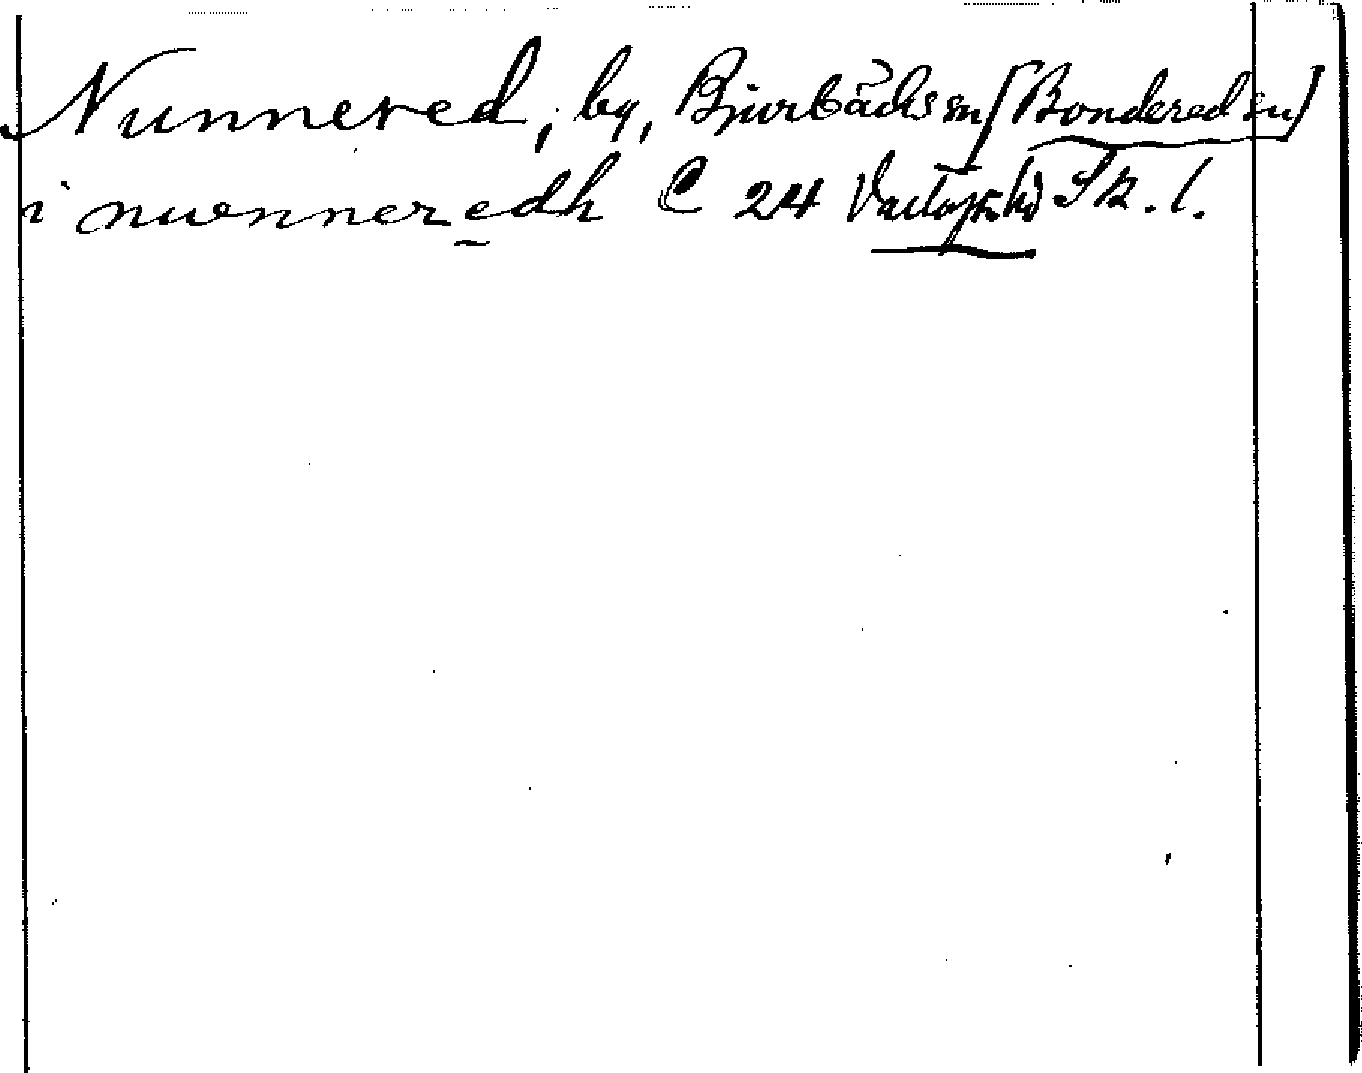 Nunnered, by, Bjurbäcks sn [Bondered sn]
i nwnneredh C 24 Vartofta hd Sk. l.